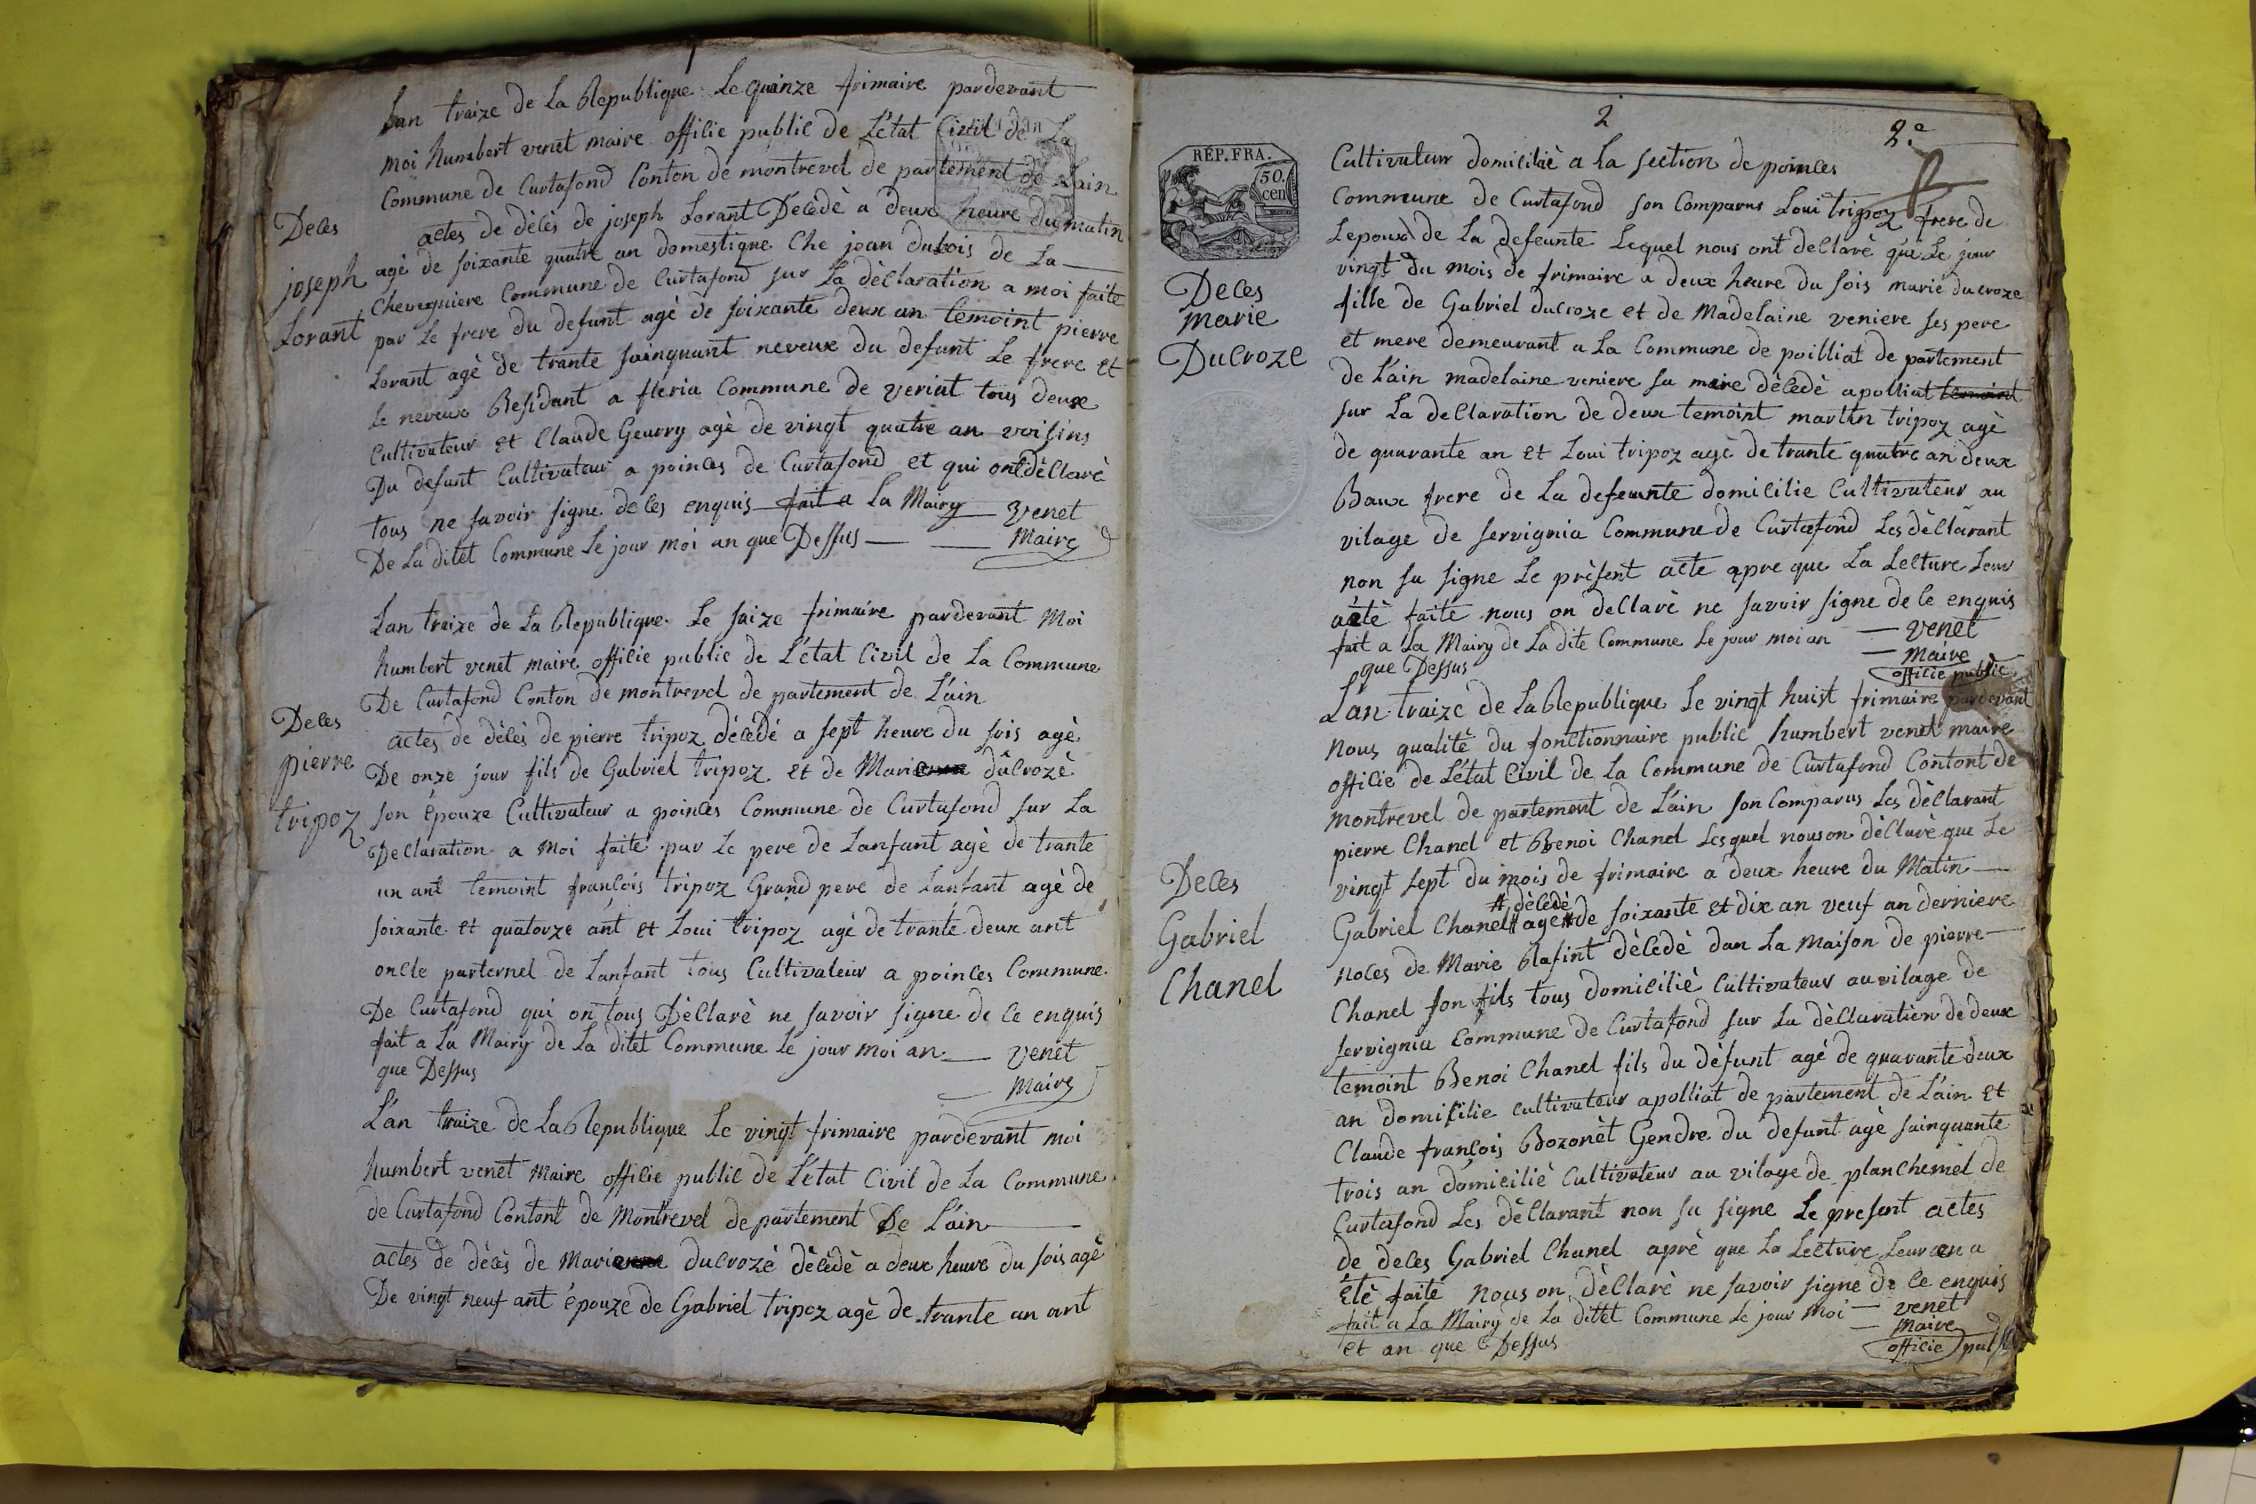 Lan traize de La Republique Le quinze frimaire pardevant
moi humbert venet maire offilie public de L'état Civil de La
Commune de Curtafond Conton de montrevel de partement de Lain
Deces
joseph
Lorant
actes de dèlès de joseph Lorant Decèdè a deux heure du matin
agè de soixante quatre an domestique Che jean dubois de La
Cheveguiere Commune de Curtafond sur La dèclaration a moi faite
par Le frere du defunt agè de soixante deux an temoint pierre
Lorant agè de trante sainquant neveux du defunt Le frere et
Le neveux Residant a fleria Commune de veriat tous deux
Cultivateur et Claude Geurry agè de vingt quatre an voisins
Du defunt Cultivateur a poinces de Curtafond et qui ont dèclarè
tous ne savoir signe de les enquis fait a La Mairy venet
De La ditet Commune Le jour moi an que Dessus Maire
Lan traize de La Republique Le saize frimaire pardevant Moi
humbert venet maire offilie public de L'état Civil de La Commune
De Curtafond Conton de montrevel de partement de L'ain
Deces
pierre
tripoz
actes de dèlès de pierre tripoz dèlèdè a sept heure du sois agè
De onze jour fils de Gabriel tripoz et de Marie duCrozè
son épouze Cultivateur a poinces Commune de Curtafond sur La
Declaration a moi faite par Le pere de Lanfant agè de trante
un ant temoint françois tripoz Grand pere de Lanfant agè de
soixante et quatorze ant et Loui tripoz agè de trante deux ant
oncle parternel de Lanfant tous Cultivateur a poinces Commune
De Curtafond qui on tous Dèclarè ne savoir signe de le enquis
fait a La Mairy de La ditet Commune Le jour moi an venet
que Dessus Maire
L'an traize de La Republique Le vingt frimaire pardevant moi
humbert venet Maire offilie public de L'état Civil de La Commune
de Curtafond Contont de Montrevel departement De L'ain
actes de dècès de Marie duCrozè dèlèdè a deux heure du sois agè
De vingt neuf ant épouze de Gabriel tripoz agè de trante un ant
2
2e
RÉP. FRA.
50.
cen
Deces
Marie
DuCroze
Cultivateur domicilié a La section de poinces
Commune de Curtafond son Comparus Loui tripoz frere de
Lepoux de La defeunte Lequel nous ont declarè que Le jour
vingt du mois de frimaire a deux heure du sois marie ducroze
fille de Gabriel ducroze et de Madelaine veniere ses pere
et mere demeurant a La Commune de poilliat de partement
de L'ain madelaine veniere sa mere dèledè apolliat temoint
sur La declaration de deux temoint martin tripoz agè
de quarante an et Loui tripoz agè de trante quatre an deux
Baux frere de La defeunte domicilie Cultivateur au
vilage de servignia Commune de Curtafond Les dèclarant
non su signe Le prèsent acte apre que La Lecture Leur
aètè faite nous on declarè ne savoir signe de le enquis
fait a La Mairy de La dite Commune Le jour moi an venet
que Dessus Maire
offilie public
Lan traize de La Republique Le vingt huist frimaire pardevant
Nous qualitè du fonctionnaire public humbert venet maire
offilie de L'état Civil de La Commune de Curtafond Contont de
Montrevel de partement de L'ain son Comparus Les dèclarant
pierre Chanel et Benoi Chanel Lesquel nous on dèclarè que Le
vingt sept du mois de frimaire a deux heure du Matin
Deces
Gabriel
Chanel
# dècèdè
Gabriel Chanel # agè # de soixante et dix an veuf an derniere
noces de Marie Rafint dèlèdè dan La maison de pierre
Chanel son fils tous domiciliè Cultivateur au vilage de
servignia Commune de Curtafond sur La dèclaration de deux
temoint Benoi Chanel fils du dèfunt agè de quarante deux
an domicilie cultivateur apolliat de partement de L'ain et
Claude françois Bozonèt Gendre du defunt agè sainquante
trois an domiciliè Cultivateur au vilage de planchemel de
Curtafond Les dèclarant non su signe Le present actes
de deces Gabriel Chanel aprè que La Lecture Leur en a
étè faite nous on dèclarè ne savoir signe de le enquis
fait a La Mairy de La ditet Commune Le jour Moi venet
et an que Dessus Maire
offilie